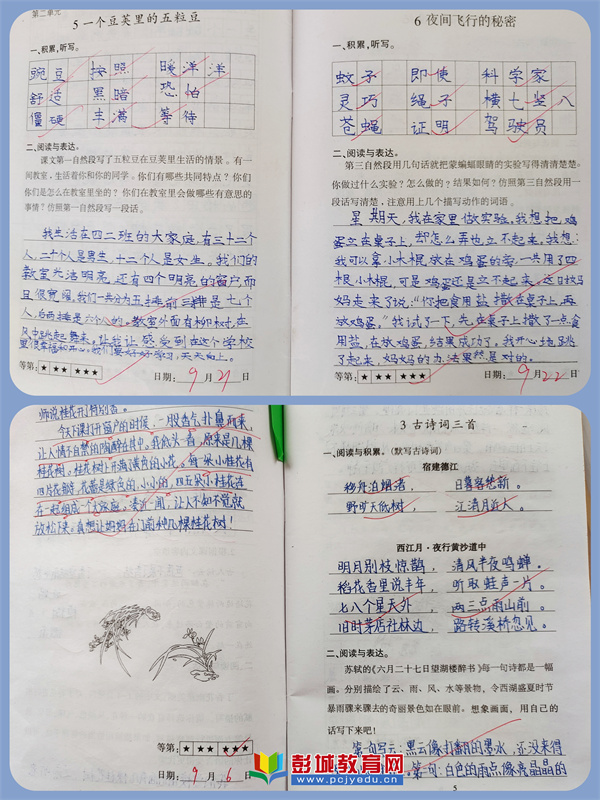 第二单元
5 一个豆荚里的五粒豆
一、积累,听写。
豌豆 按照 暖洋洋
舒适 黑暗 恐怕
僵硬 丰满 等待
二、阅读与表达。
课文第一自然段写了五粒豆在豆荚里生活的情景。有一
间教室,生活着你和你的同学。你们有哪些共同特点?你们
你们是怎么在教室里坐的?你们在教室里会做哪些有意思的
事情?仿照第一自然段写一段话。
我生活在四二班的大家庭,有三十二个
人,二十个人是男生,十二个人是女生。我们的
教室光洁明亮,还有四个明亮的窗户,而
且很宽
我们一共分为五排,前三排是七个
人,后两排是六个人的。教室外面有柳树,在
风中跳起舞来。让我让感受到在这个学校
里很幸福和开心,我们要好好学习,天天向上。
等第: ★ ★★ ★★★
日期: 9 月 21 日
6 夜间飞行的秘密
一、积累,听写。
蚊子 即使 科学家
灵巧 绳子 横七竖八
苍蝇 证明 驾驶员
二、阅读与表达。
第三自然段用几句话就把蒙蝙蝠眼睛的实验写得清清楚楚。
你做过什么实验?怎么做的?结果如何?仿照第三自然段用一
段话写清楚,注意用上几个描写动作的词语。
星期天,我在家里做实验。我想把鸡
蛋立在桌子上,却怎么弄也立不起来。我想:
我可以拿小木棍放在鸡蛋的旁,一共用了四
根小木棍,可是鸡蛋还是立不起来,这时妈
妈走来了说:“你把食用盐撒在桌子上,再
放鸡蛋。”我试了一下,先在桌子上撒了一点食
用盐,在放鸡蛋,结果成功了。我开心地跳
了起来,妈妈的办法果然是对的。
等第: ★ ★★ ★★★
日期: 9 月 22 日
师说桂花开了特别香。
今天下课打开窗户的时候,一股香气扑鼻而来,
让人情不自禁的陶醉在其中。我低头一看,原来是几棵
桂花树,桂花树上开满淡黄的小花。每一朵小桂花有
四片花瓣,花蕊是淡黄的,小小的,四五朵小桂花在
在一起组成一个大家庭。凑近一闻,让人不知不觉就
放松下来。真想让妈妈在门前种几棵桂花树!
等第: ★ ★★ ★★★
9 月 6 日
3 古诗词三首
一、阅读与积累。(默写古诗词)
宿建德江
移舟泊烟渚, 日暮客愁新。
野旷天低树, 江清月近人。
西江月·夜行黄沙道中
明月别枝惊鹊, 清风半夜鸣蝉。
稻花香里说丰年, 听取蛙声一片。
七八个星天外, 两三点雨山前。
旧时茅店社林边, 路转溪桥忽见。
二、阅读与表达。
苏轼的《六月二十七日望湖楼醉书》每一句诗都是一幅
画。分别描绘了云、雨、风、水等景物,令西湖盛夏时节
暴雨骤来骤去的奇丽景色如在眼前。想象画面,用自己的
话写下来吧!
第一句写云:黑云像打翻的墨水,还没来得
第二句:白色的雨点像亮晶晶的
5
彭城教育网
www.pcjyedu.cn